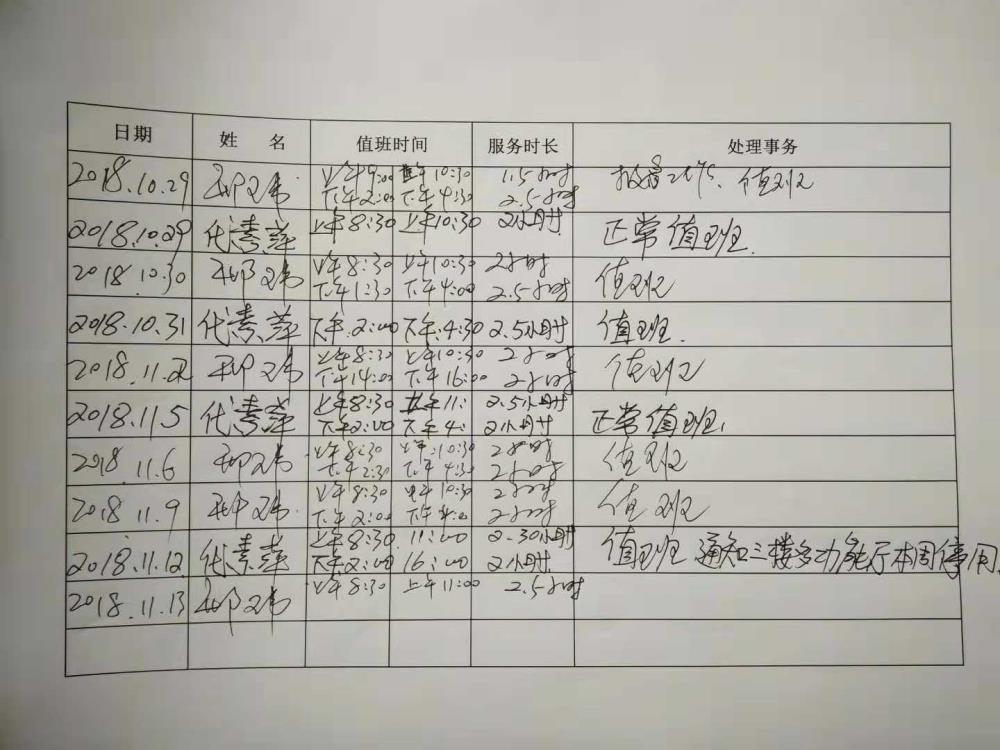 日期 姓 名 值班时间 服务时长 处理事务
2018.10.29
上午9:00 上午10:30 1.5小时
下午2:00 下午4:30 2.5小时
值班
2018.10.29 代素萍 上午8:30 上午10:30 2小时 正常值班.
2018.10.30
上午8:30 上午10:30 2小时
下午1:30 下午4:00 2.5小时
值班
2018.10.31 代素萍 下午2:00 下午4:30 2.5小时 值班.
2018.11.2
上午8:30 上午10:30 2小时
下午14:00 下午16:00 2小时
值班
2018.11.5 代素萍
上午8:30 上午11: 2.5小时
下午2:00 下午4: 2小时
正常值班.
2018.11.6
上午8:30 上午10:30 2小时
下午2:30 下午4:30 2小时
值班
2018.11.9
上午8:30 上午10:30 2小时
下午2:00 下午4:00 2小时
值班
2018.11.12 代素萍
上午8:30 11:00 2.30小时
下午2:00 16:00 2小时
值班 通知三楼多功能厅本周停用.
2018.11.13
上午8:30 上午11:00 2.5小时